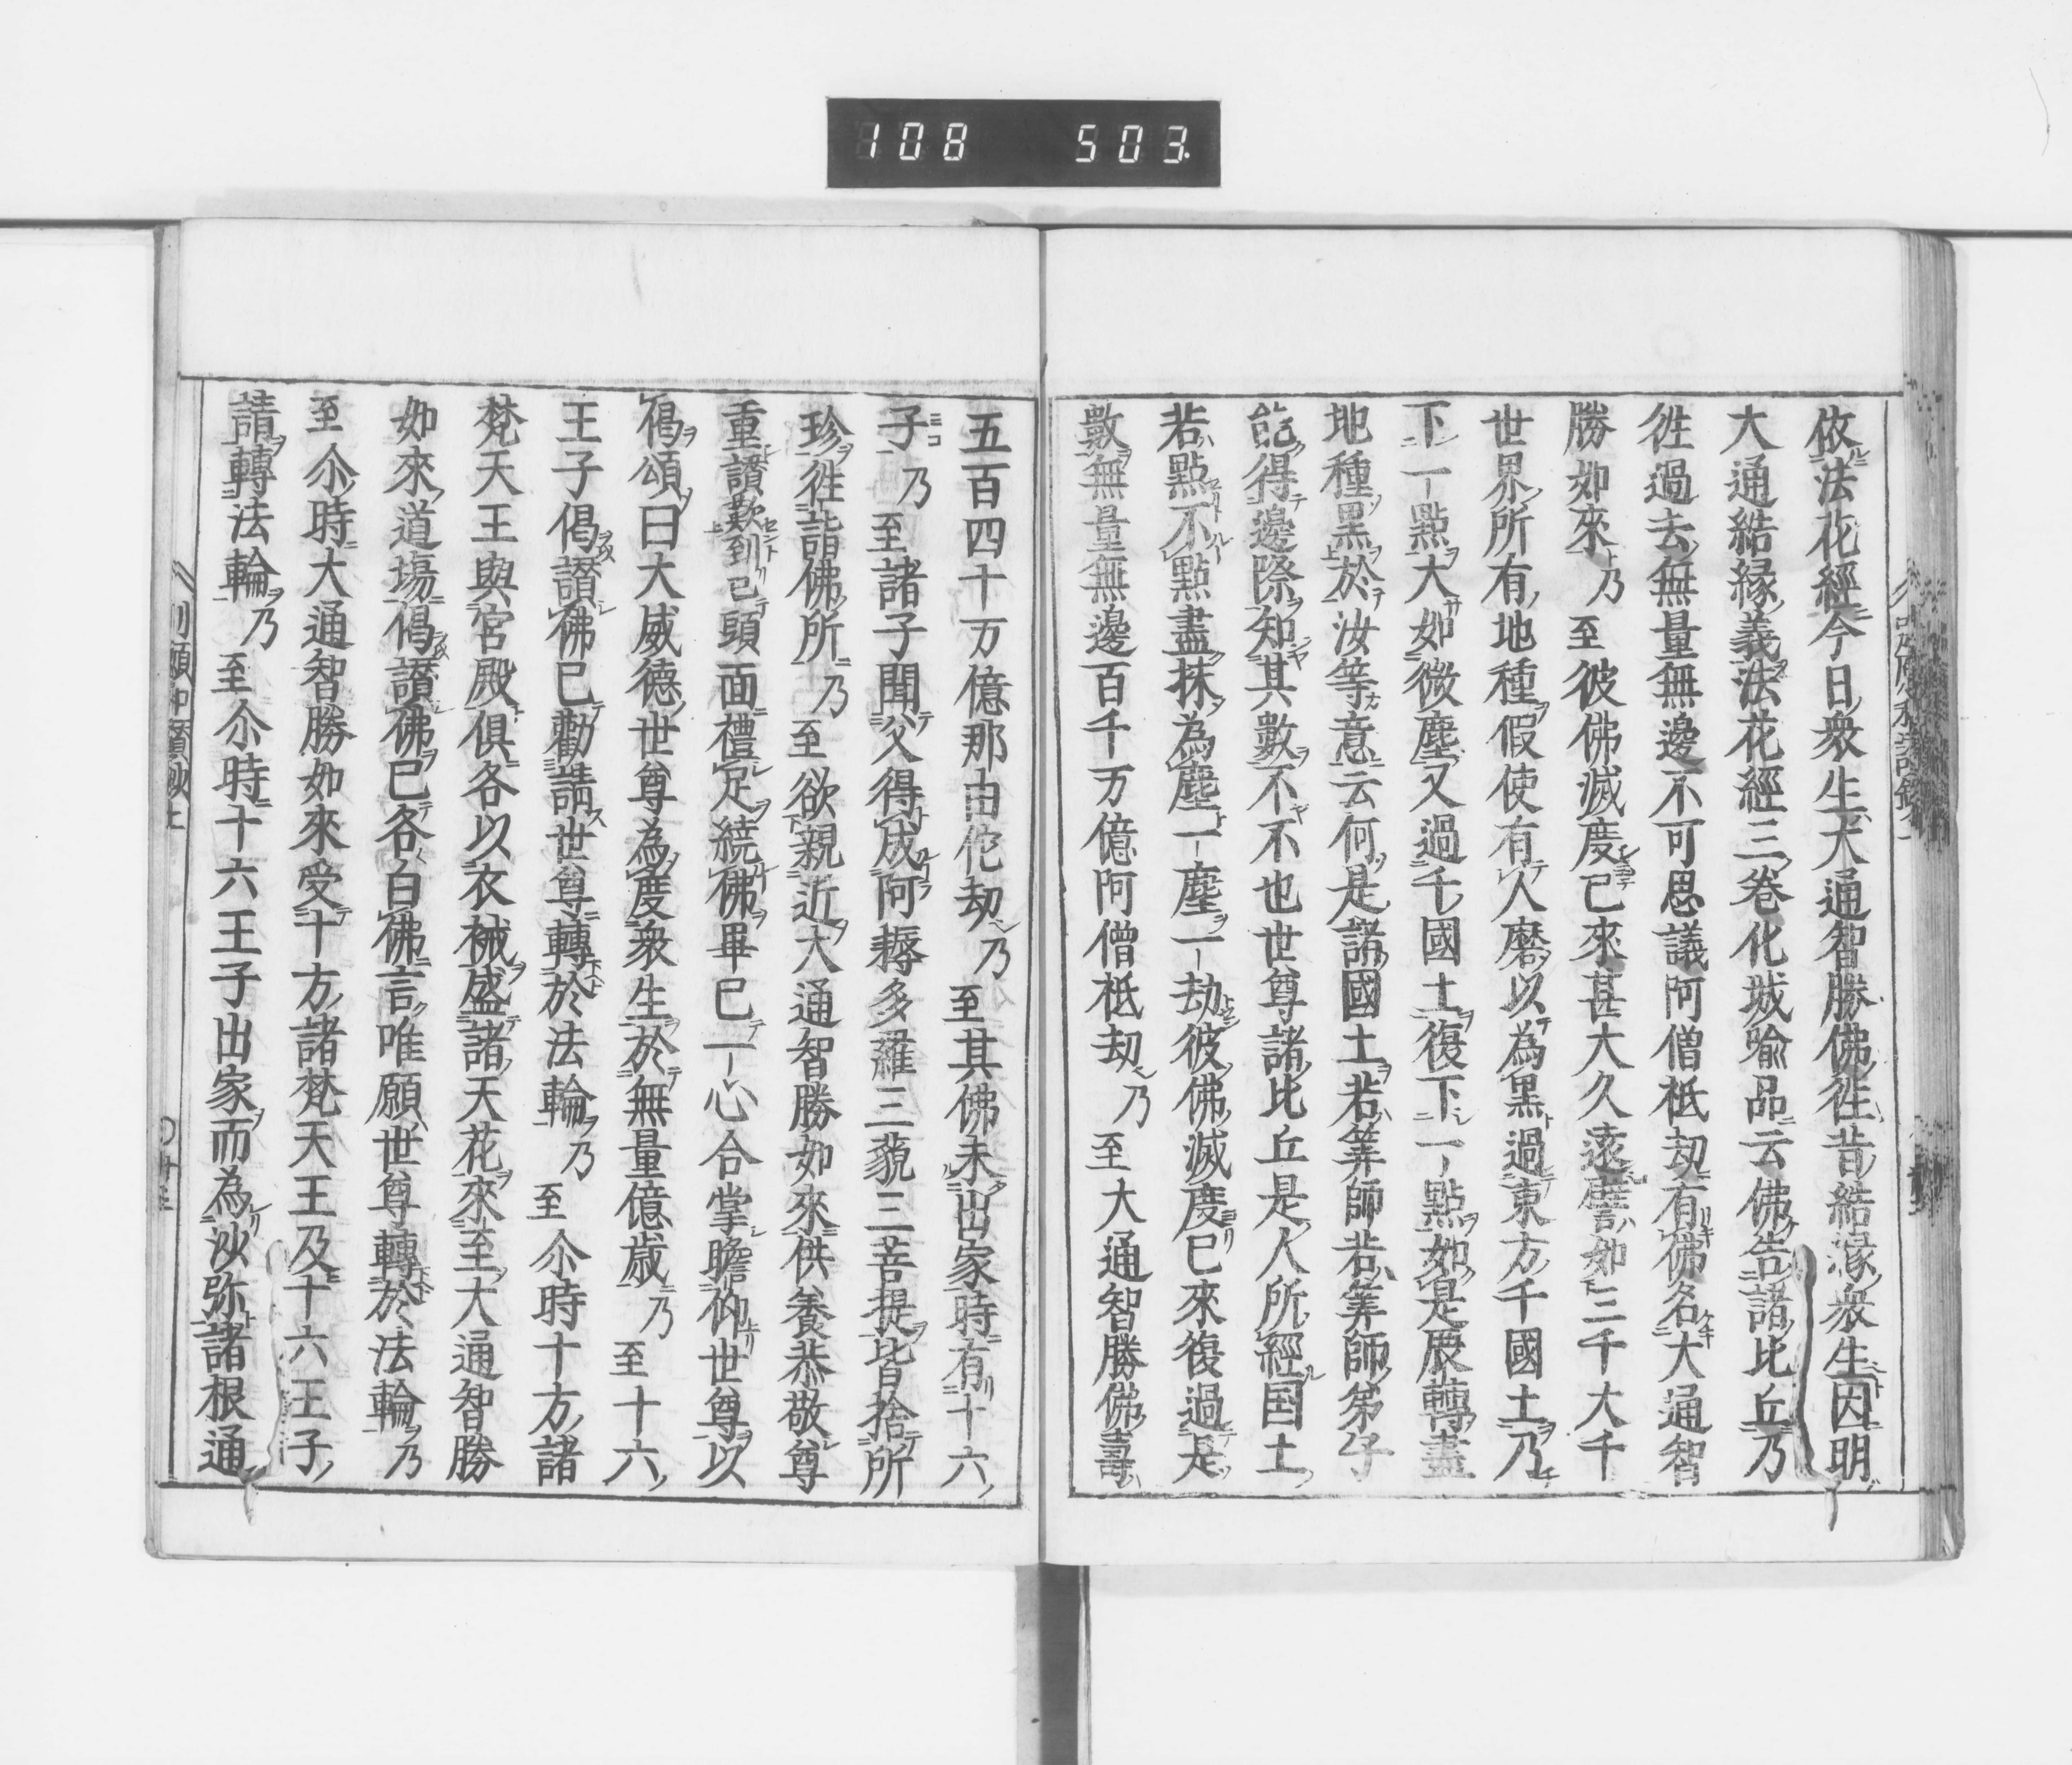 108 503
依法花經今日衆生大通智勝佛徃昔結縁衆生因明
大通結縁義法花經三卷化城喩品云佛告諸比丘乃
徃過去無量無邊不可思議阿僧祇劫有佛名大通智
勝如來乃至彼佛滅度已來甚大久遠譬如三千大千
世界所有地種假使有人磨以為黒過東方千國土乃
下一點大如微塵又過千國土復下一點如是展轉盡
地種黒於汝等意云何是諸國土若筭師若筭師弟子
能得邊際知其數不不也世尊諸比丘是人所經国土
若點不點盡抹為塵一塵一劫彼佛滅度已來復過是
數無量無邊百千万億阿僧祇劫乃至大通智勝佛壽
五百四十万億那由佗劫乃至其佛未出家時有十六
子乃至諸子聞父得成阿耨多羅三藐三菩提皆捨所
珍徃詣佛所乃至欲親近大通智勝如來供養恭敬尊
重讃歎到已頭面禮足繞佛畢已一心合掌瞻仰世尊以
偈頌曰大威德世尊為度衆生於無量億歳乃至十六
王子偈讃佛已勸請世尊轉於法輪乃至尒時十方諸
梵天王與宮殿俱各以衣裓盛諸天花來至大通智勝
如來道場偈讃佛已各白佛言唯願世尊轉於法輪乃
至尒時大通智勝如來受十方諸梵天王及十六王子
請轉法輪乃至尒時十六王子出家而為沙弥諸根通